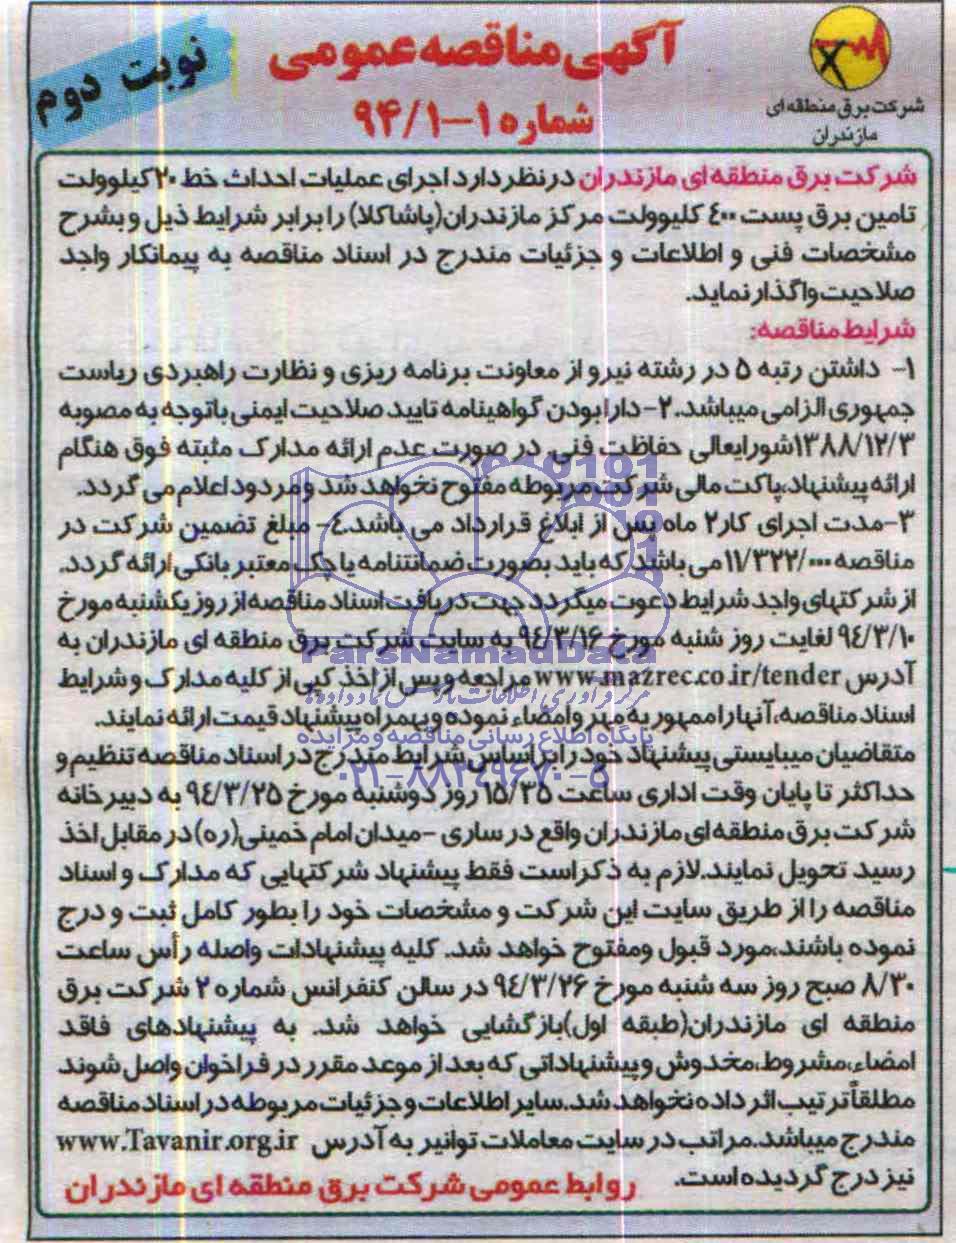 آگهی مناقصه عمومی
شماره ۱-۹۴/۱
نوبت دوم
شرکت برق منطقه ای
مازندران
شرکت برق منطقه ای مازندران درنظر دارد اجرای عملیات احداث خط ۲۰کیلوولت
تامین برق پست ۴۰۰ کلیوولت مرکز مازندران(پاشاکلا) را برابر شرایط ذیل و بشرح
مشخصات فنی و اطلاعات و جزئیات مندرج در اسناد مناقصه به پیمانکار واجد
صلاحیت واگذار نماید.
شرایط مناقصه:
۱- داشتن رتبه ۵ در رشته نیرو از معاونت برنامه ریزی و نظارت راهبردی ریاست
جمهوری الزامی میباشد. ۲-دارا بودن گواهینامه تایید صلاحیت ایمنی باتوجه به مصوبه
۱۳۸۸/۱۲/۳شورایعالی حفاظت فنی. در صورت عدم ارائه مدارک مثبته فوق هنگام
ارائه پیشنهاد،پاکت مالی شرکت مربوطه مفتوح نخواهد شد و مردود اعلام می گردد.
۳-مدت اجرای کار۲ ماه پس از ابلاغ قرارداد می باشد.٤- مبلغ تضمین شرکت در
مناقصه ۱۱/۳۲۲/۰۰۰ می باشد که باید بصورت ضمانتنامه یا چک معتبر بانکی ارائه گردد.
از شرکتهای واجد شرایط دعوت میگردد جهت دریافت اسناد مناقصه از روز یکشنبه مورخ
۹٤/۳/۱۰ لغایت روز شنبه مورخ ۹٤/۳/۱۶ به سایت شرکت برق منطقه ای مازندران به
آدرس www.mazrec.co.ir/tender مراجعه و پس از اخذ کپی از کلیه مدارک و شرایط
اسناد مناقصه،آنهارا ممهور به مهر و امضاء نموده و بهمراه پیشنهاد قیمت ارائه نمایند.
متقاضیان میبایستی پیشنهاد خود را براساس شرایط مندرج در اسناد مناقصه تنظیم و
حداکثر تا پایان وقت اداری ساعت ۱۵/۳۵ روز دوشنبه مورخ ۹٤/۳/۲۵ به دبیرخانه
شرکت برق منطقه ای مازندران واقع در ساری -میدان امام خمینی(ره) در مقابل اخذ
رسید تحویل نمایند.لازم به ذکر است فقط پیشنهاد شرکتهایی که مدارک و اسناد
مناقصه را از طریق سایت این شرکت و مشخصات خود را بطور کامل ثبت و درج
نموده باشند،مورد قبول ومفتوح خواهد شد. کلیه پیشنهادات واصله رأس ساعت
۸/۳۰ صبح روز سه شنبه مورخ ۹٤/۳/۲۶ در سالن کنفرانس شماره ۲ شرکت برق
منطقه ای مازندران(طبقه اول)بازگشایی خواهد شد. به پیشنهادهای فاقد
امضاء،مشروط،مخدوش و پیشنهاداتی که بعد از موعد مقرر در فراخوان واصل شوند
مطلقاً ترتیب اثر داده نخواهد شد.سایر اطلاعات و جزئیات مربوطه در اسناد مناقصه
مندرج میباشد.مراتب در سایت معاملات توانیر به آدرس www.Tavanir.org.ir
نیز درج گردیده است.
روابط عمومی شرکت برق منطقه ای مازندران
ParsNamadData
پایگاه اطلاع رسانی مناقصه و مزایده
۰۲۱-۸۸۳۴۹۶۷۰-۵